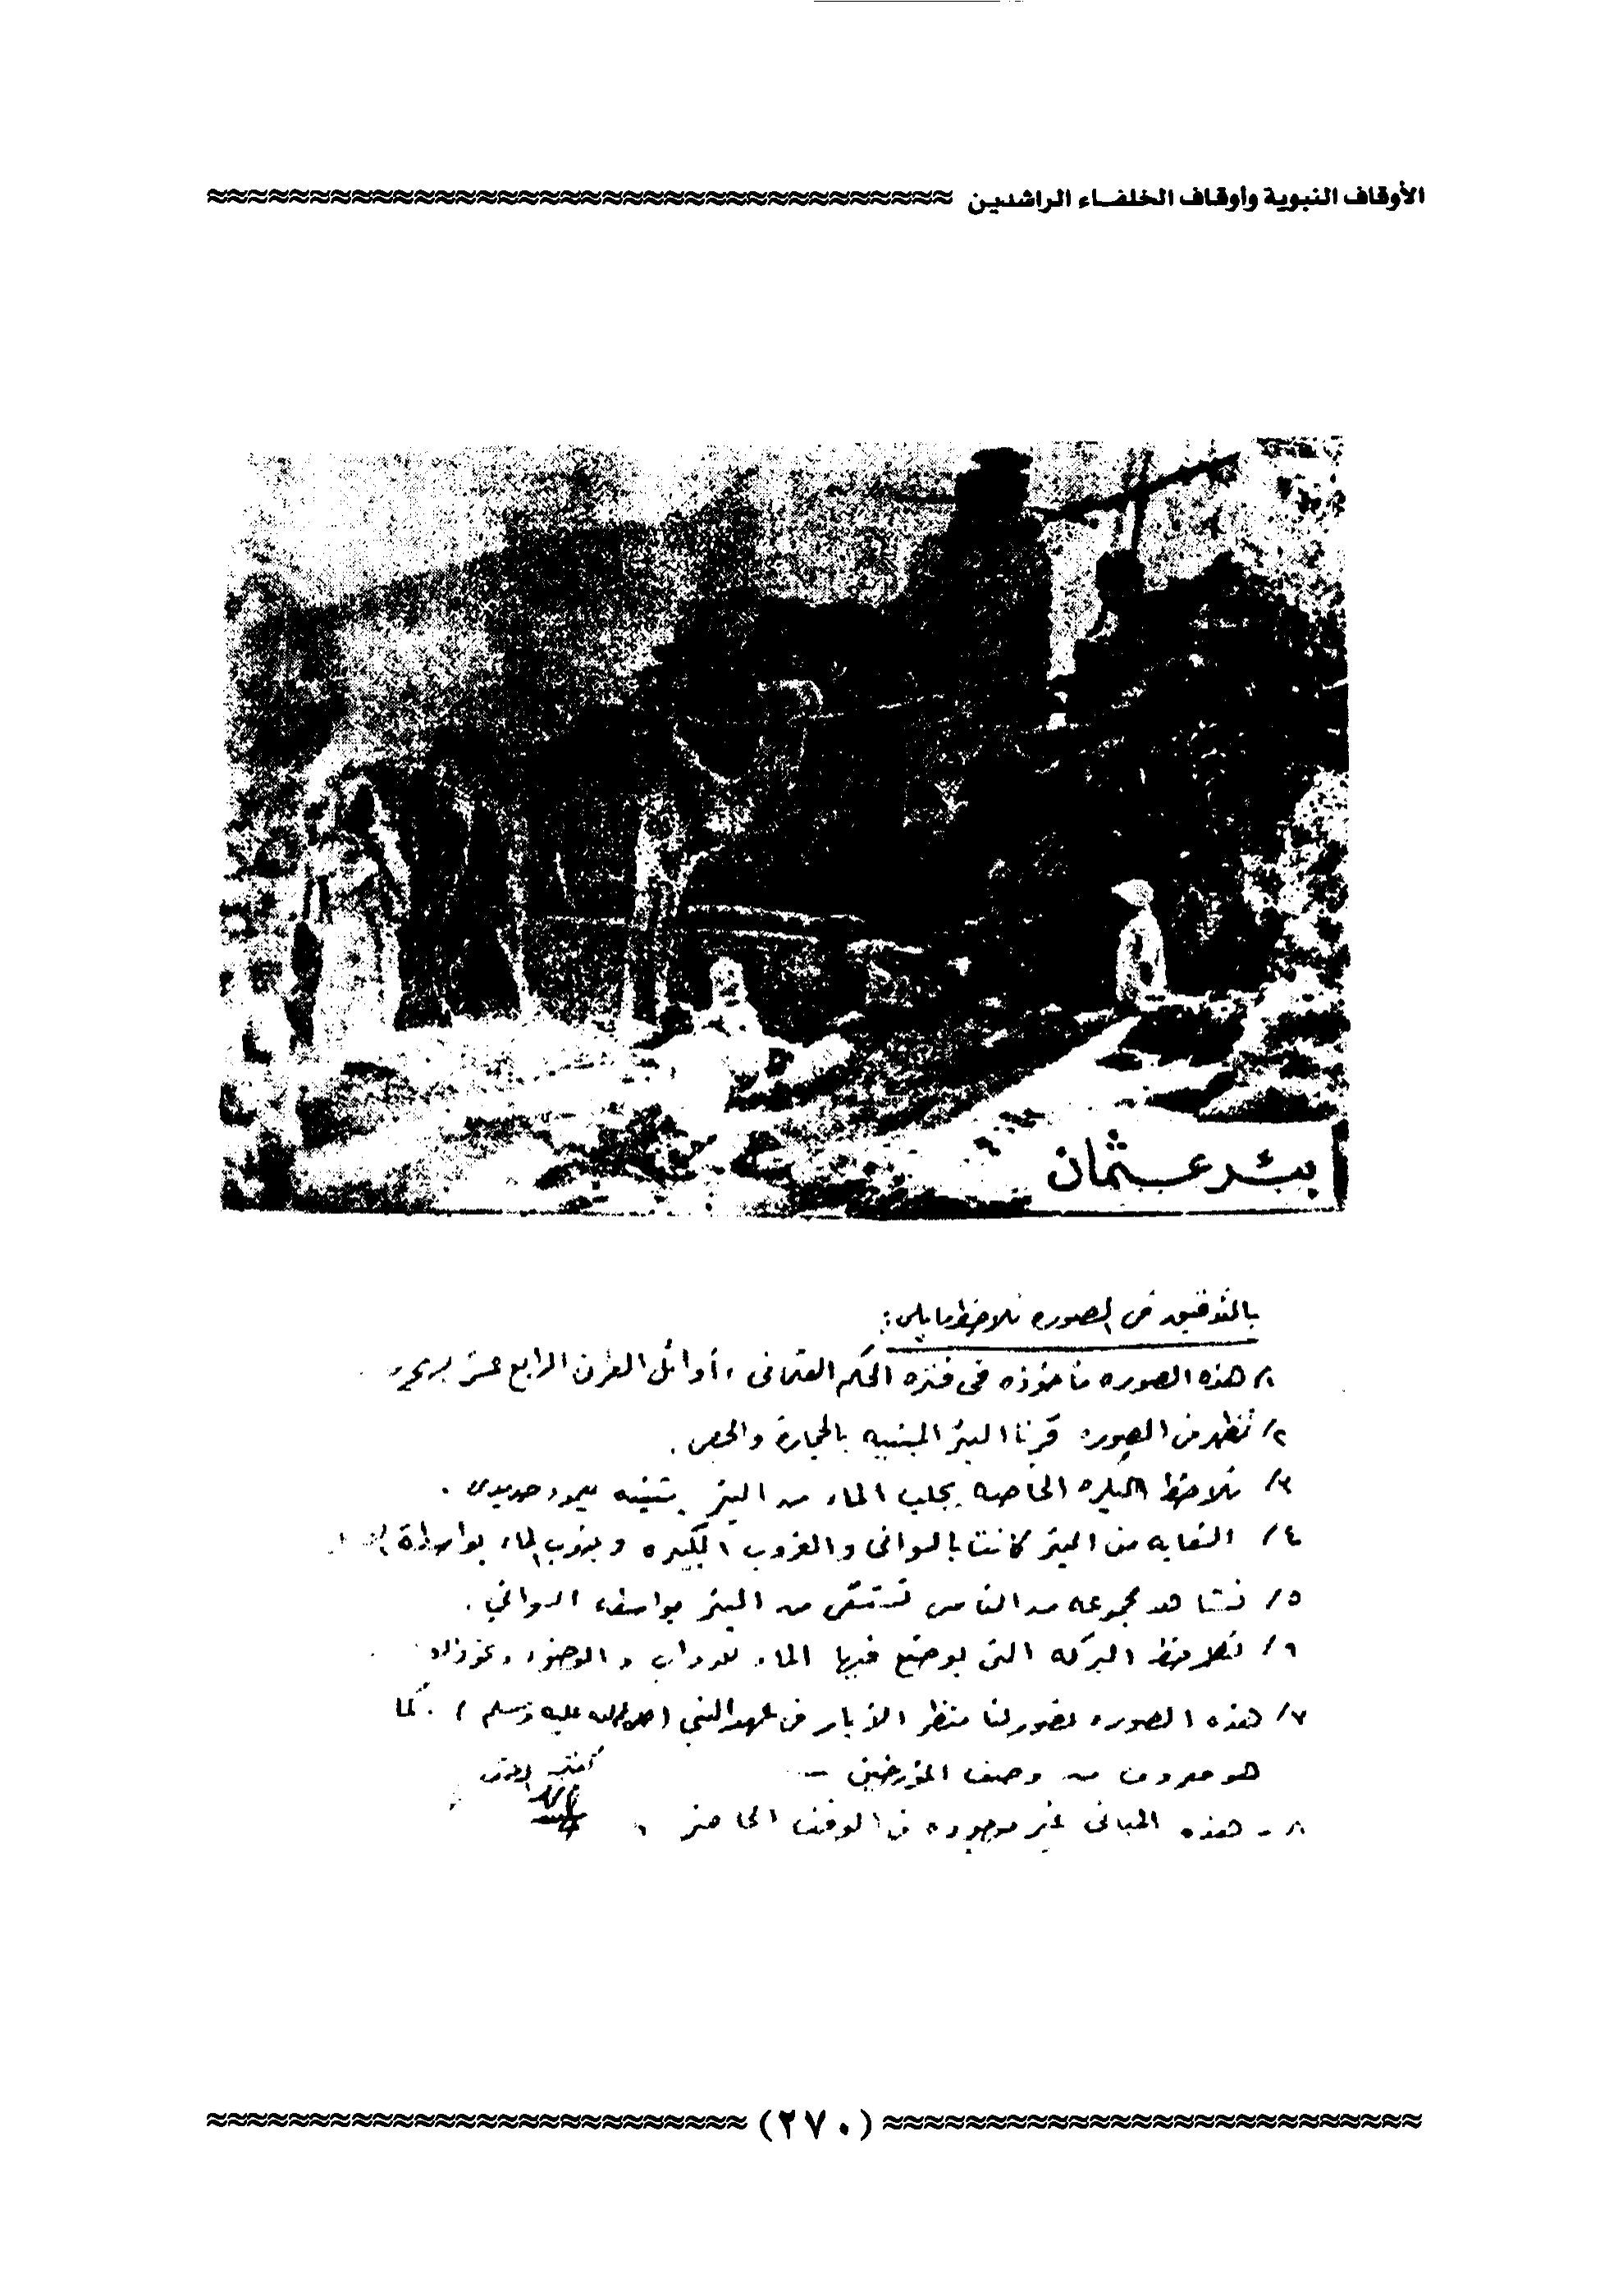 الأوقاف النبوية وأوقاف الخلفاء الراشدين
بئر عثمان
بالتدقيق في الصوره نلاحظ مايلي:
١/ هذه الصوره مأخوذه في فتره الحكم العثماني، أوائل القرن الرابع عشر
٢/ تظهر في الصوره قرنا البئر المبنيه بالحجارة والجص.
٣/ نلاحظ البكره الخاصه بجلب الماء من البئر مثبته بعمود حديدى.
٤/ السقايه من البئر كانت بالسوانى والغروب الكبيره و الماء بواسطة
٥/ نشاهد مجموعه من الناس تستقى من البئر بواسطه السوانى.
٦/ نلاحظ البركه التى يوضع فيها الماء للدواب والوضوء ونحو ذلك
٧/ هذه الصوره تصور لنا منظر الآبار في عهد النبي (صلى الله عليه وسلم). كما
هو معروف من وصف المؤرخين -
٨ - هذه المبانى غير موجوده في الوقت الحاضر
(٢٧٠)